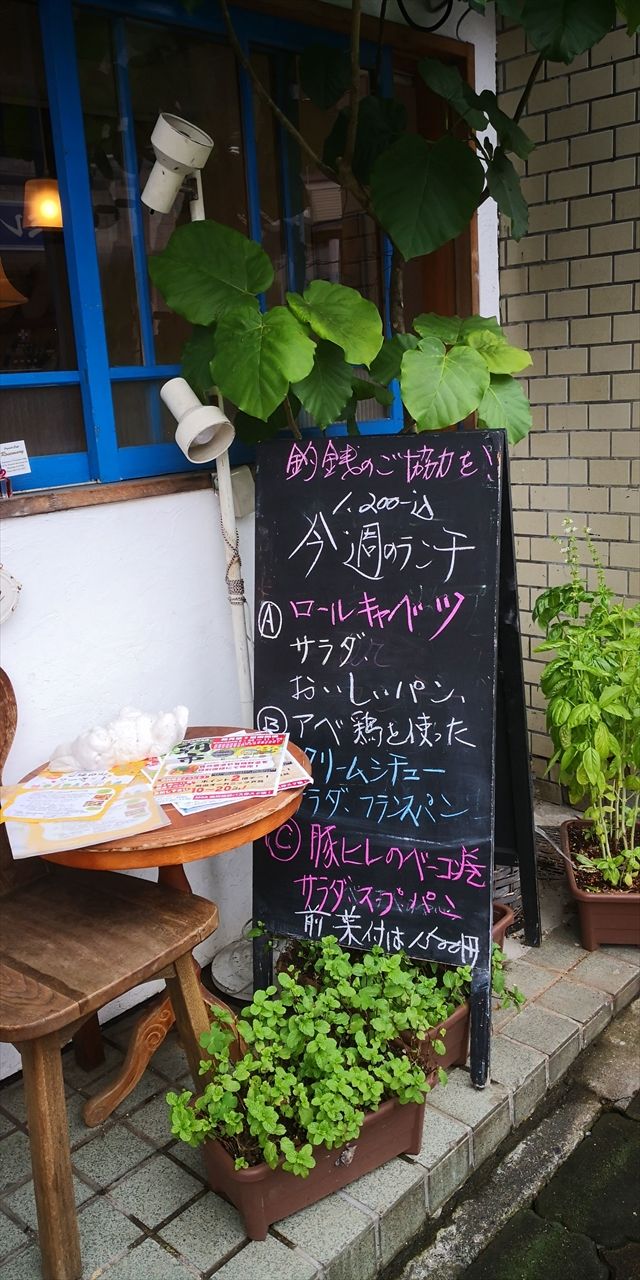 釣銭のご協力を!
1.200-込
今週のランチ
Ⓐ ロールキャベツ
サラダ、
おいしいパン、
Ⓑ アベ鶏を使った
クリームシチュー
ラダ、フランスパン
Ⓒ 豚ヒレのベーコン巻
サラダ、スープ、パン
前菜付は1,500円
Rosemary
10~20